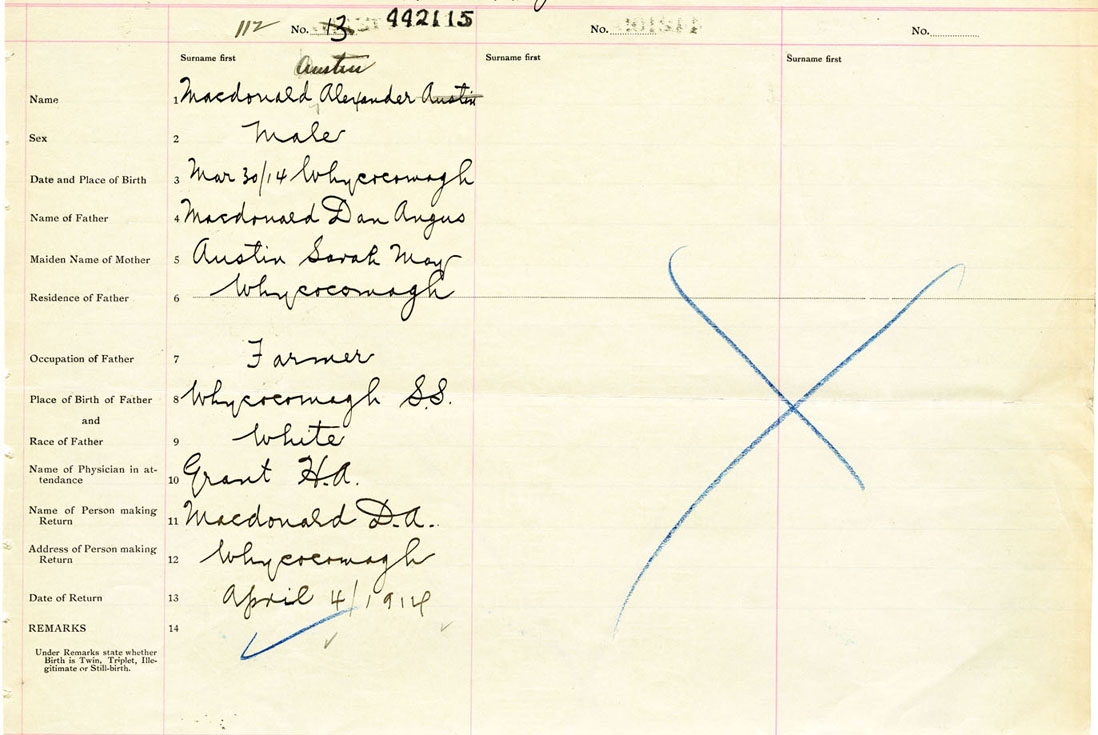 112 No. 13 442115 No. No.
Surname first Surname first Surname first
Austin
Name 1 Macdonald Alexander Austin
Sex 2 Male
Date and Place of Birth 3 Mar 30/14 Whycocomagh
Name of Father 4 Macdonald Dan Angus
Maiden Name of Mother 5 Austin Sarah May
Residence of Father 6 Whycocomagh
Occupation of Father 7 Farmer
Place of Birth of Father 8 Whycocomagh S.S.
and
Race of Father 9 White
Name of Physician in at-
tendance 10 Grant H.A.
Name of Person making
Return 11 Macdonald D.A.
Address of Person making
Return 12 Whycocomagh
Date of Return 13 April 4/1914
REMARKS 14
Under Remarks state whether
Birth is Twin, Triplet, Ille-
gitimate or Still-birth.